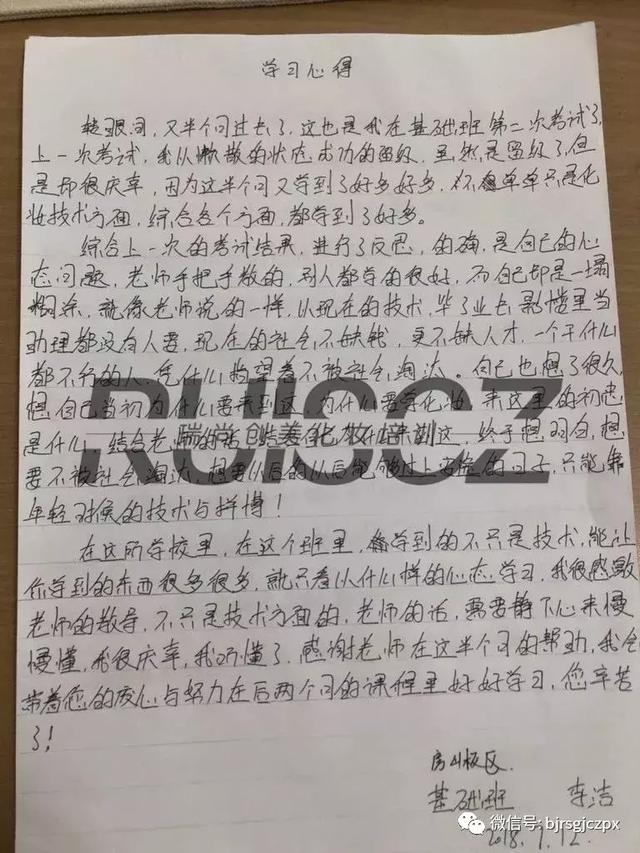 学习心得
转眼间,又半个月过去了,这也是我在基础班第二次考试了,
上一次考试,我从懒散的状态成功的留级,虽然是留级了,但
是却很庆幸,因为这半个月又学到了好多好多,不单单只是化
妆技术方面,综合各个方面,都学到了好多。
综合上一次的考试结果,进行了反思,的确,是自己的心
态问题,老师手把手教的,别人都学的很好,而自己却是一塌
糊涂,就像老师说的一样,以现在的技术,毕了业去影楼里当
助理都没有人要,现在的社会不缺钱,更不缺人才,一个干什么
都不行的人,凭什么指望着不被社会淘汰。自己也想了很久,
想自己当初为什么要来到这,为什么要学化妆,来这里的初衷
是什么,结合老师的话,这,终于想明白,想
要不被社会淘汰,想要以后的以后能够过上安稳的日子,只能靠
年轻时候的技术与拼搏!
在这所学校里,在这个班里,学到的不只是技术,能让
你学到的东西很多很多,就只看以什么样的心态学习,我很感激
老师的教导,不只是技术方面的,老师的话,需要静下心来慢
慢懂,我很庆幸,我听懂了,感谢老师在这半个月的帮助,我会
带着您的爱心与努力在后两个月的课程里好好学习,您辛苦
了!
房山校区.
基础班 李洁
2018.1.12.
RUISCZ
瑞尚创美化妆培训
微信号: bjrsgjczpx